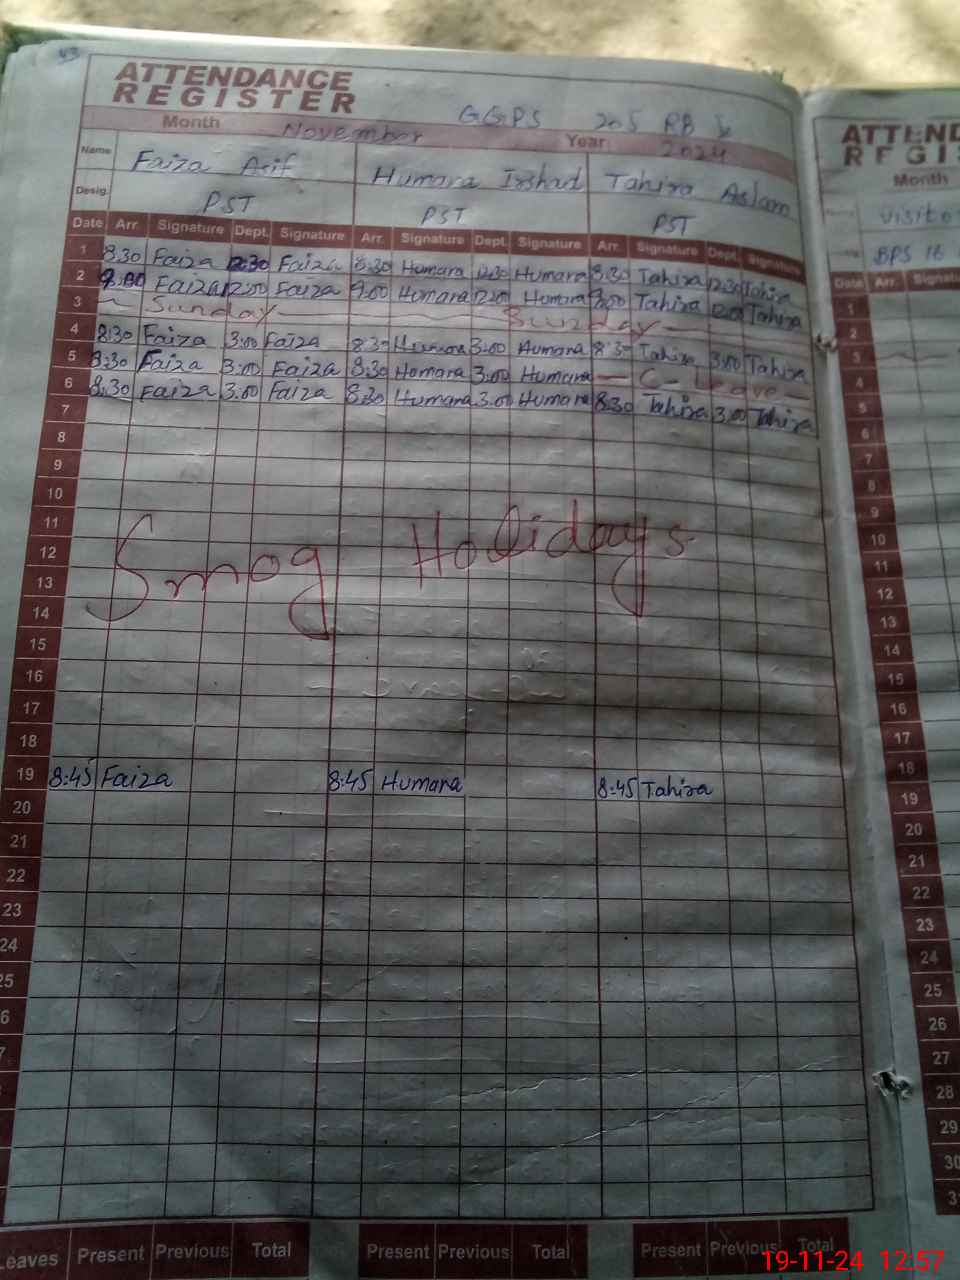 43
ATTENDANCE
REGISTER
GGPS 205 RB
Month November Year: 2024
Name Faiza Asif Humara Irshad Tahira Aslam
Desig. PST PST PST
Date Arr. Signature Dept. Signature Arr. Signature Dept. Signature Arr. Signature Dept. Signature
1 8:30 Faiza 12:30 Faiza 8:30 Humara 12:30 Humara 8:30 Tahira 12:30 Tahira
2 9:00 Faiza 12:00 Faiza 9:00 Humara 12:00 Humara 9:00 Tahira 12:00 Tahira
3 Sunday Sunday
4 8:30 Faiza 3:00 Faiza 8:30 Humara 3:00 Humara 8:30 Tahira 3:00 Tahira
5 8:30 Faiza 3:00 Faiza 8:30 Humara 3:00 Humara C- Leave
6 8:30 Faiza 3:00 Faiza 8:30 Humara 3:00 Humara 8:30 Tahira 3:00 Tahira
7
8
9
10
11
12 Smog Holidays
13
14
15
16
17
18
19 8:45 Faiza 8:45 Humara 8:45 Tahira
20
21
22
23
24
25
Leaves Present Previous Total Present Previous Total Present Previous Total
ATTEND
REGIS
Month
Visito
BPS 16
Date Arr. Signatu
1
2
3
4
5
6
7
8
9
10
11
12
13
14
15
16
17
18
19
20
21
22
23
24
25
26
27
28
29
30
19-11-24 12:57